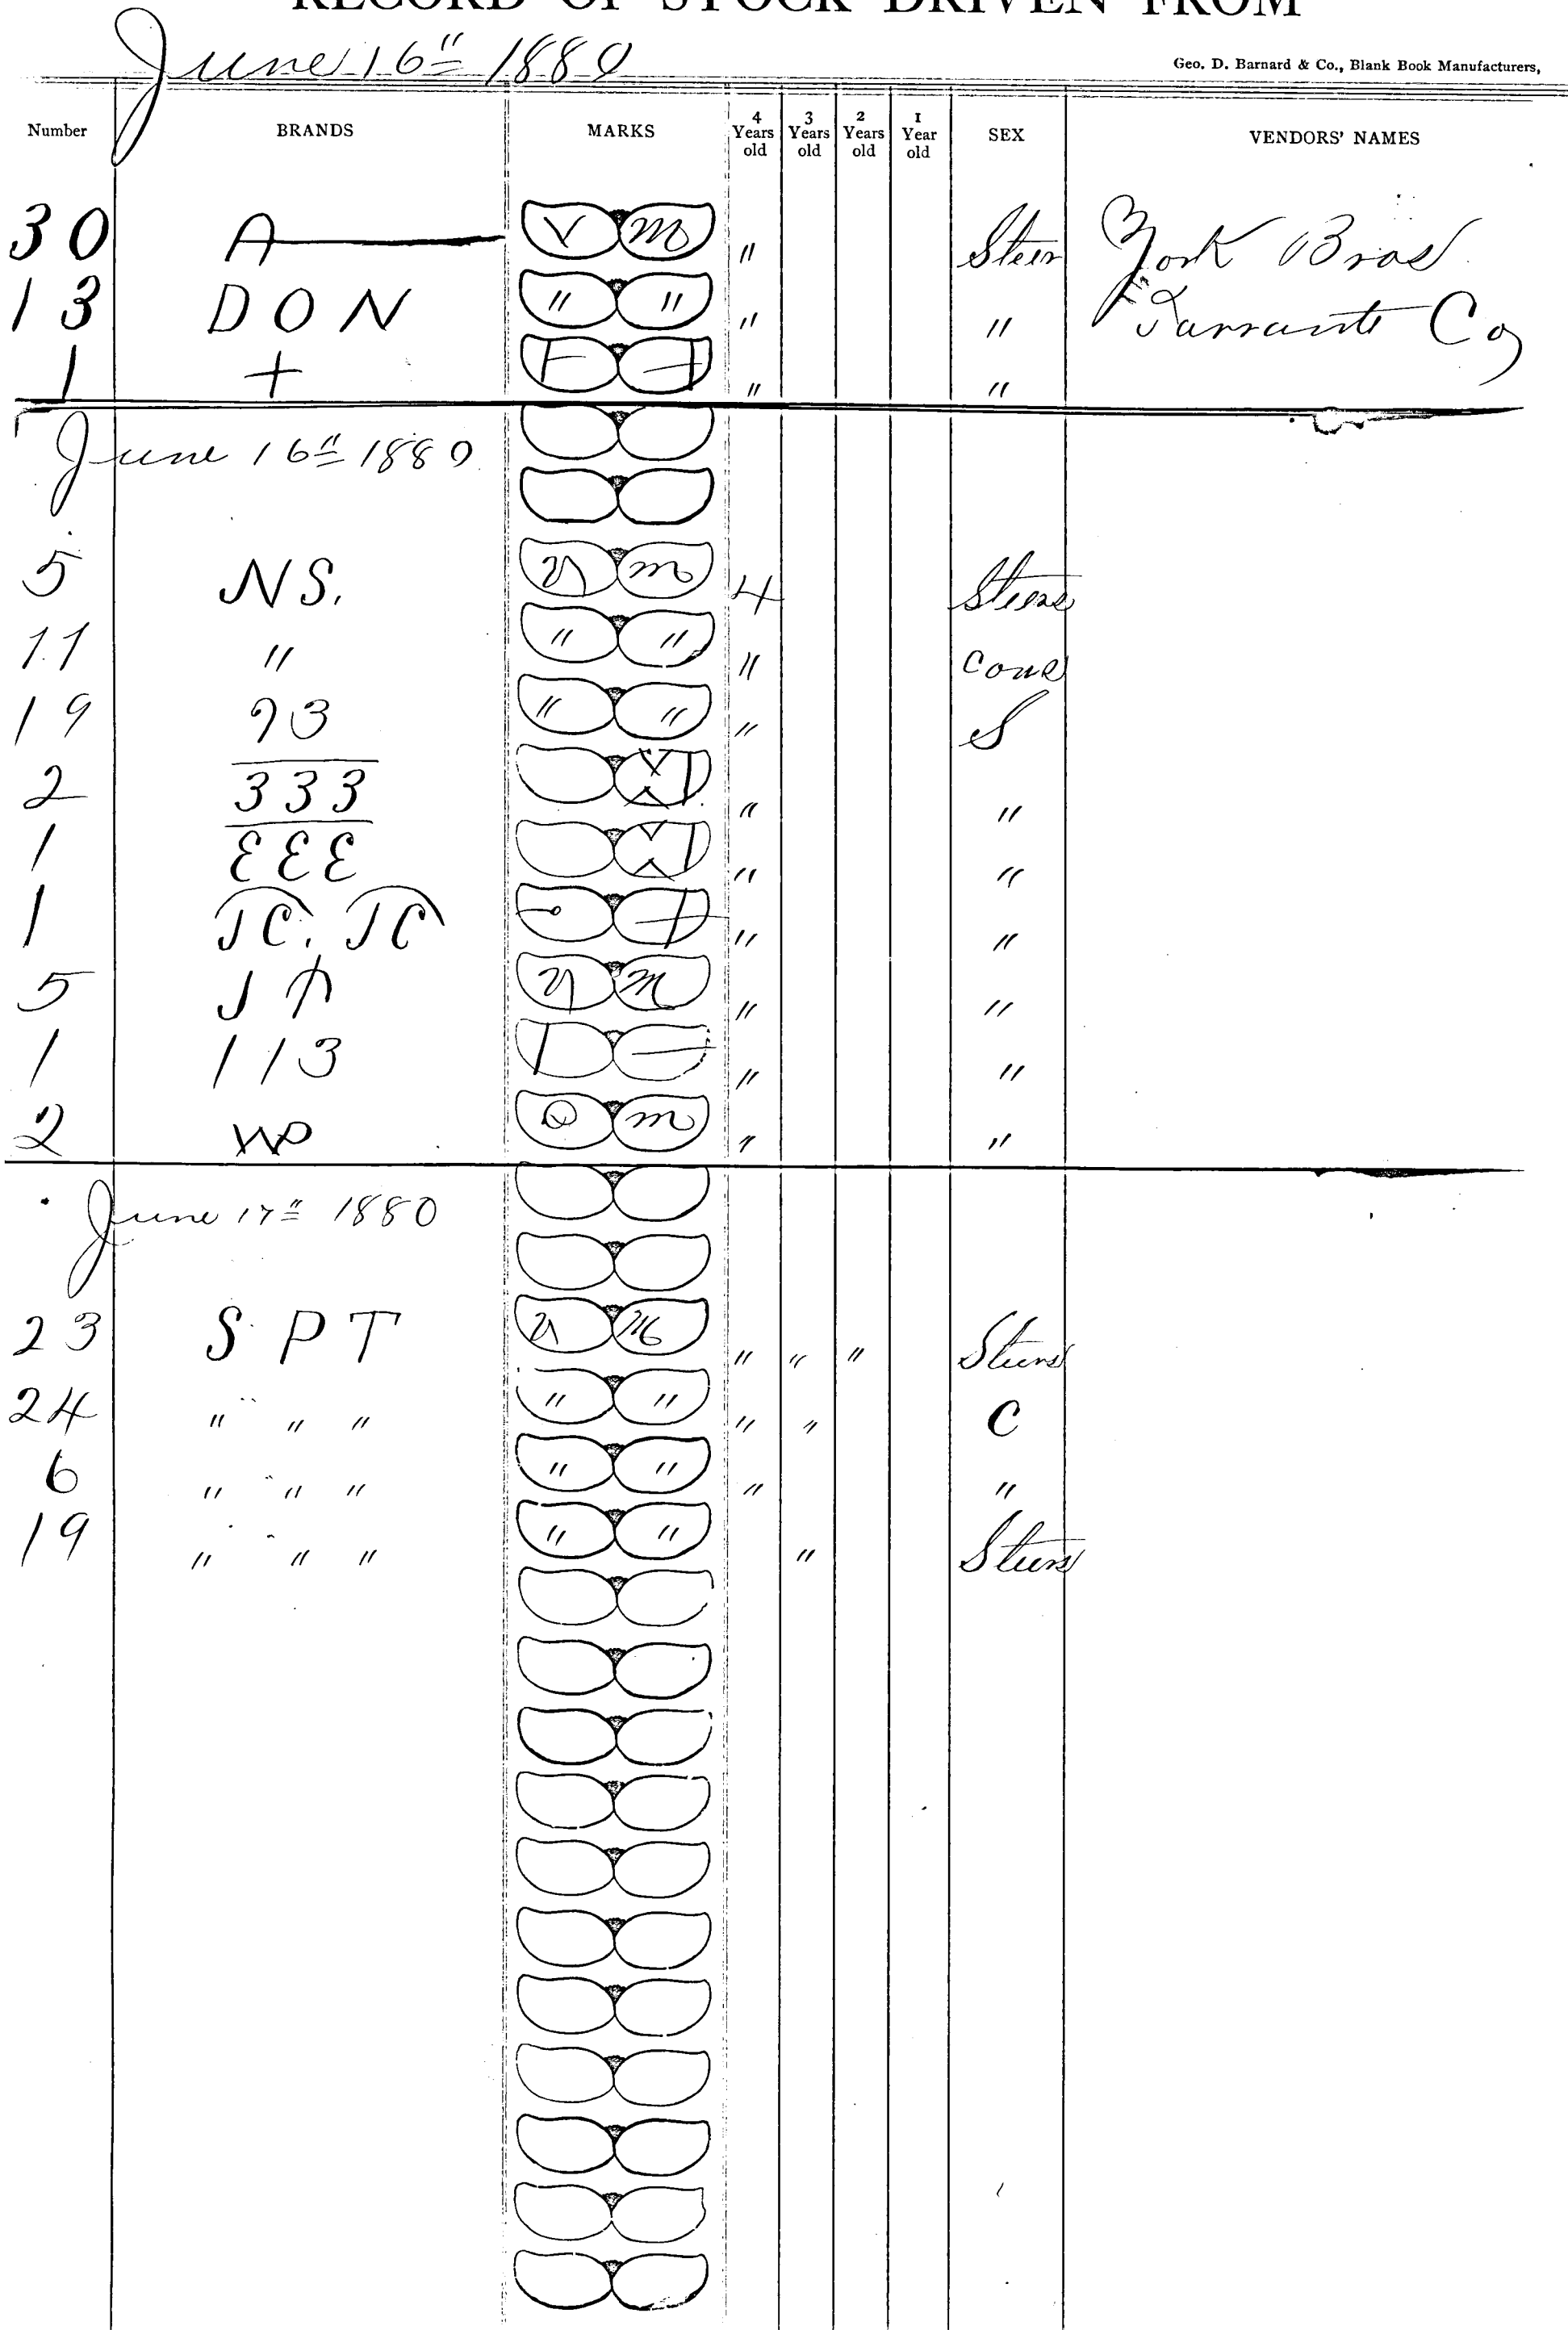 RECORD OF STOCK DRIVEN FROM
June 16" 1880
Geo. D. Barnard & Co., Blank Book Manufacturers,
Number BRANDS MARKS 4 Years old 3 Years old 2 Years old 1 Year old SEX VENDORS' NAMES
30 A V m " Steer York Bros
13 DON " " " " Tarrant Co
1 + " "
June 16" 1880
5 NS. m 4 Steers
11 " " " " Cows
19 93 " " " S
2 333 " "
1 EEE " "
1 JC. JC " "
5 J m " "
1 113 " "
2 WP m " "
June 17" 1880
23 S P T M " " " Steers
24 " " " " " " " C
6 " " " " " " "
19 " " " " " " Steers